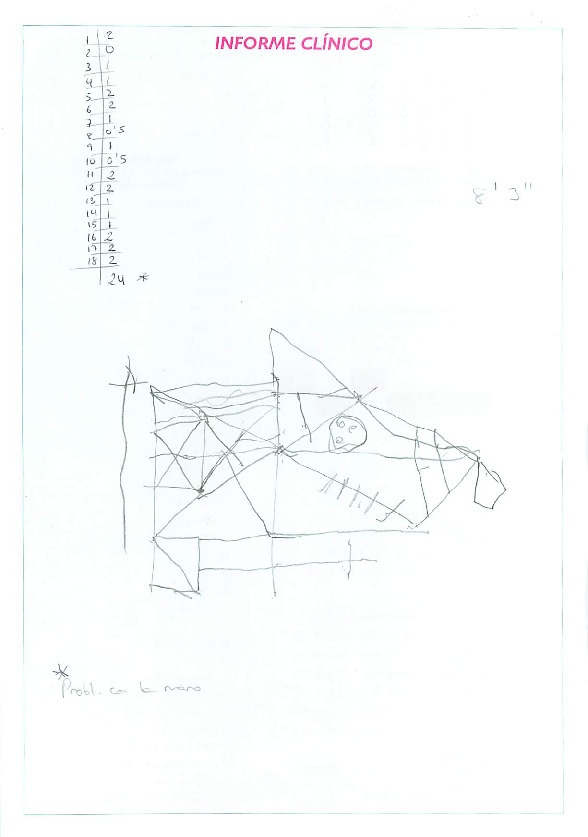 INFORME CLÍNICO
1 2
2 0
3 1
4 1
5 2
6 2
7 1
8 0'5
9 1
10 0'5
11 2
12 2
13 1
14 1
15 1
16 2
17 2
18 2
24 *
8' 3"
*
Probl. con la mano